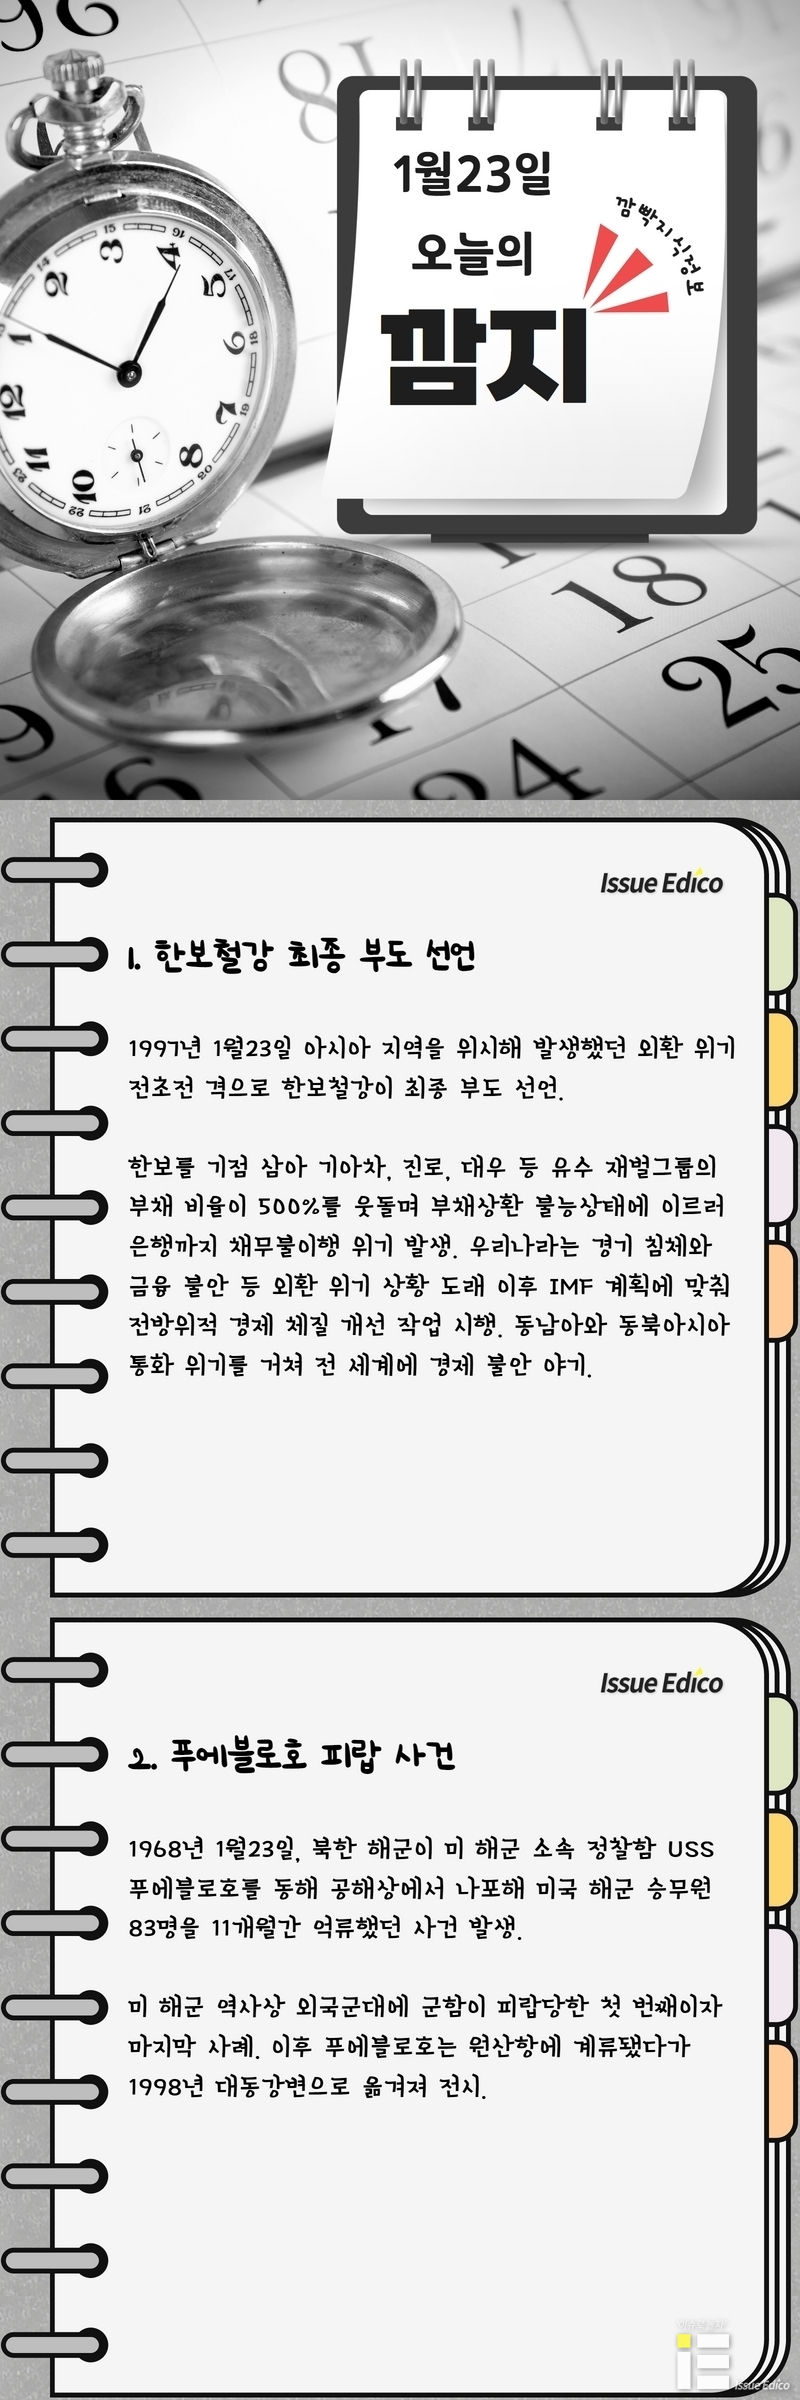 1월23일
오늘의
깜지
깜빡지식정보
Issue Edico
1. 한보철강 최종 부도 선언
1997년 1월23일 아시아 지역을 위시해 발생했던 외환 위기
전초전 격으로 한보철강이 최종 부도 선언.
한보를 기점 삼아 기아차, 진로, 대우 등 유수 재벌그룹의
부채 비율이 500%를 웃돌며 부채상환 불능상태에 이르러
은행까지 채무불이행 위기 발생. 우리나라는 경기 침체와
금융 불안 등 외환 위기 상황 도래 이후 IMF 계획에 맞춰
전방위적 경제 체질 개선 작업 시행. 동남아와 동북아시아
통화 위기를 거쳐 전 세계에 경제 불안 야기.
Issue Edico
2. 푸에블로호 피랍 사건
1968년 1월23일, 북한 해군이 미 해군 소속 정찰함 USS
푸에블로호를 동해 공해상에서 나포해 미국 해군 승무원
83명을 11개월간 억류했던 사건 발생.
미 해군 역사상 외국군대에 군함이 피랍당한 첫 번째이자
마지막 사례. 이후 푸에블로호는 원산항에 계류됐다가
1998년 대동강변으로 옮겨져 전시.
iE
Issue Edico